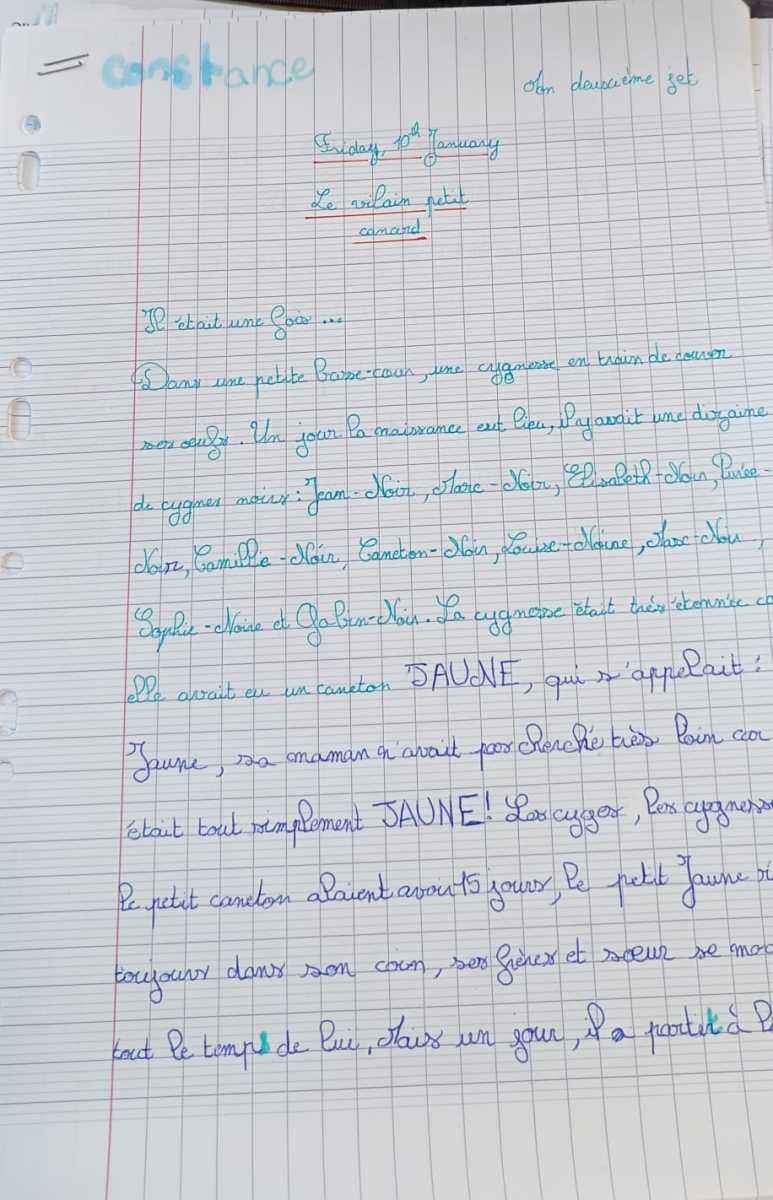 constance
Mon deuxième jet
Friday, 10th January
Le vilain petit
canard
Il était une fois ...
Dans une petite basse-cour, une cygnesse en train de couver
ses oeufs. Un jour la naissance eut lieu, il y avait une dizaine
de cygnes noirs : Jean-Noir, Marc-Noir, Elisabeth-Noir,
Noir, Camille-Noir, Caneton-Noir, Louise-Noire, Marc-Noir,
Sophie-Noire et Gabin-Noir. La cygnesse était très étonnée
elle avait eu un caneton JAUNE, qui s'appelait :
Jaune, sa maman n'avait pas cherché très loin car
était tout simplement JAUNE! Les cyges, les cygnesse
le petit caneton alaient avoir 15 jours, le petit Jaune
toujours dans son coin, ses frères et soeur se moq
tout le temps de lui, Mais un jour, il a partit à l